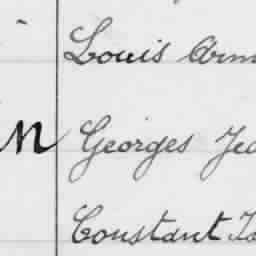 Louis Arm
n Georges Jea
Constant Jo